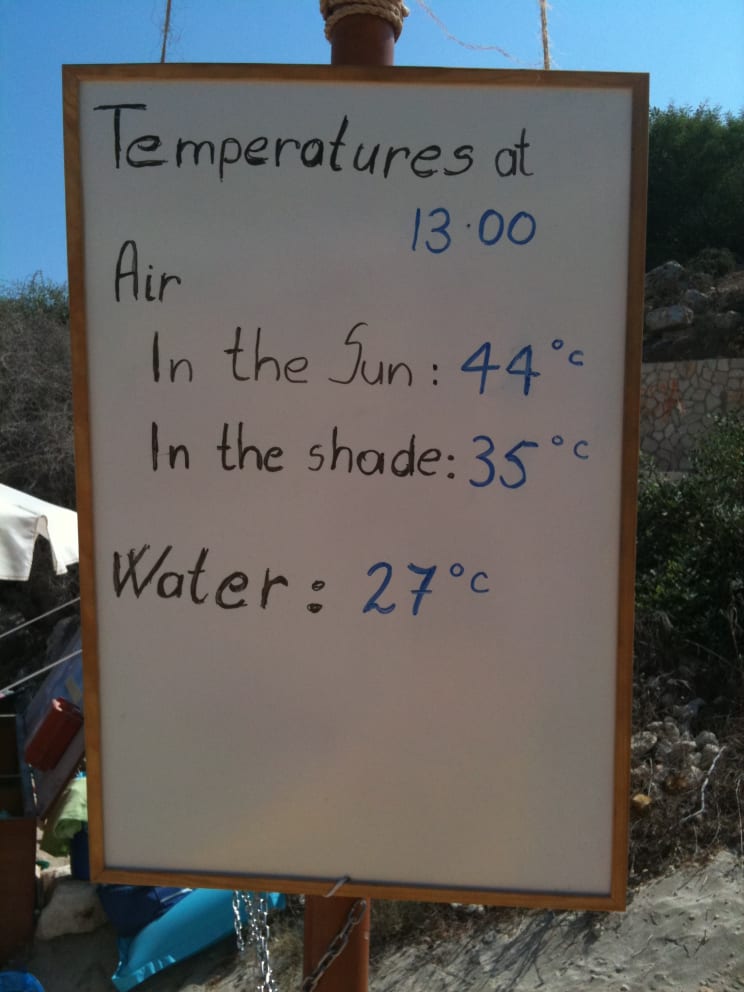 Temperatures at
13.00
Air
In the Sun: 44°c
In the shade: 35°c
Water: 27°c